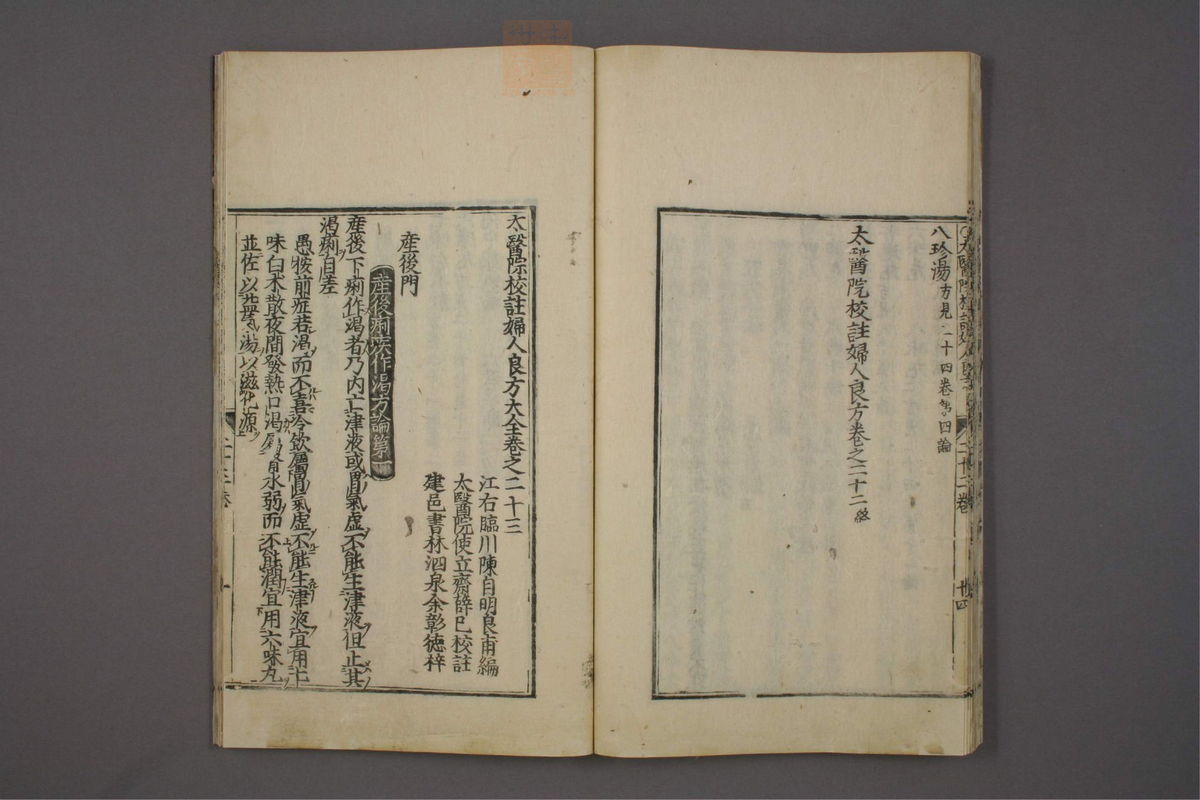 太醫院校註婦人良
二十二卷
廿四
八珍湯方見二十四卷第四論
太醫院校註婦人良方卷之二十二終
太醫院校註婦人良方大全卷之二十三
江右臨川陳自明良甫編
太醫院使立齋薛己校註
建邑書林泗泉余彰德梓
產後門
產後痢疾作渴方論第一
產後下痢作渴者乃內亡津液或胃氣虛不能生津液但止其
渴痢自差
愚按前症若渴而不喜冷飲屬胃氣虛不能生津液宜用七
味白朮散夜間發熱口渴屬腎水弱而不能潤宜用六味丸
並佐以益氣湯以滋化源
二十三卷
一